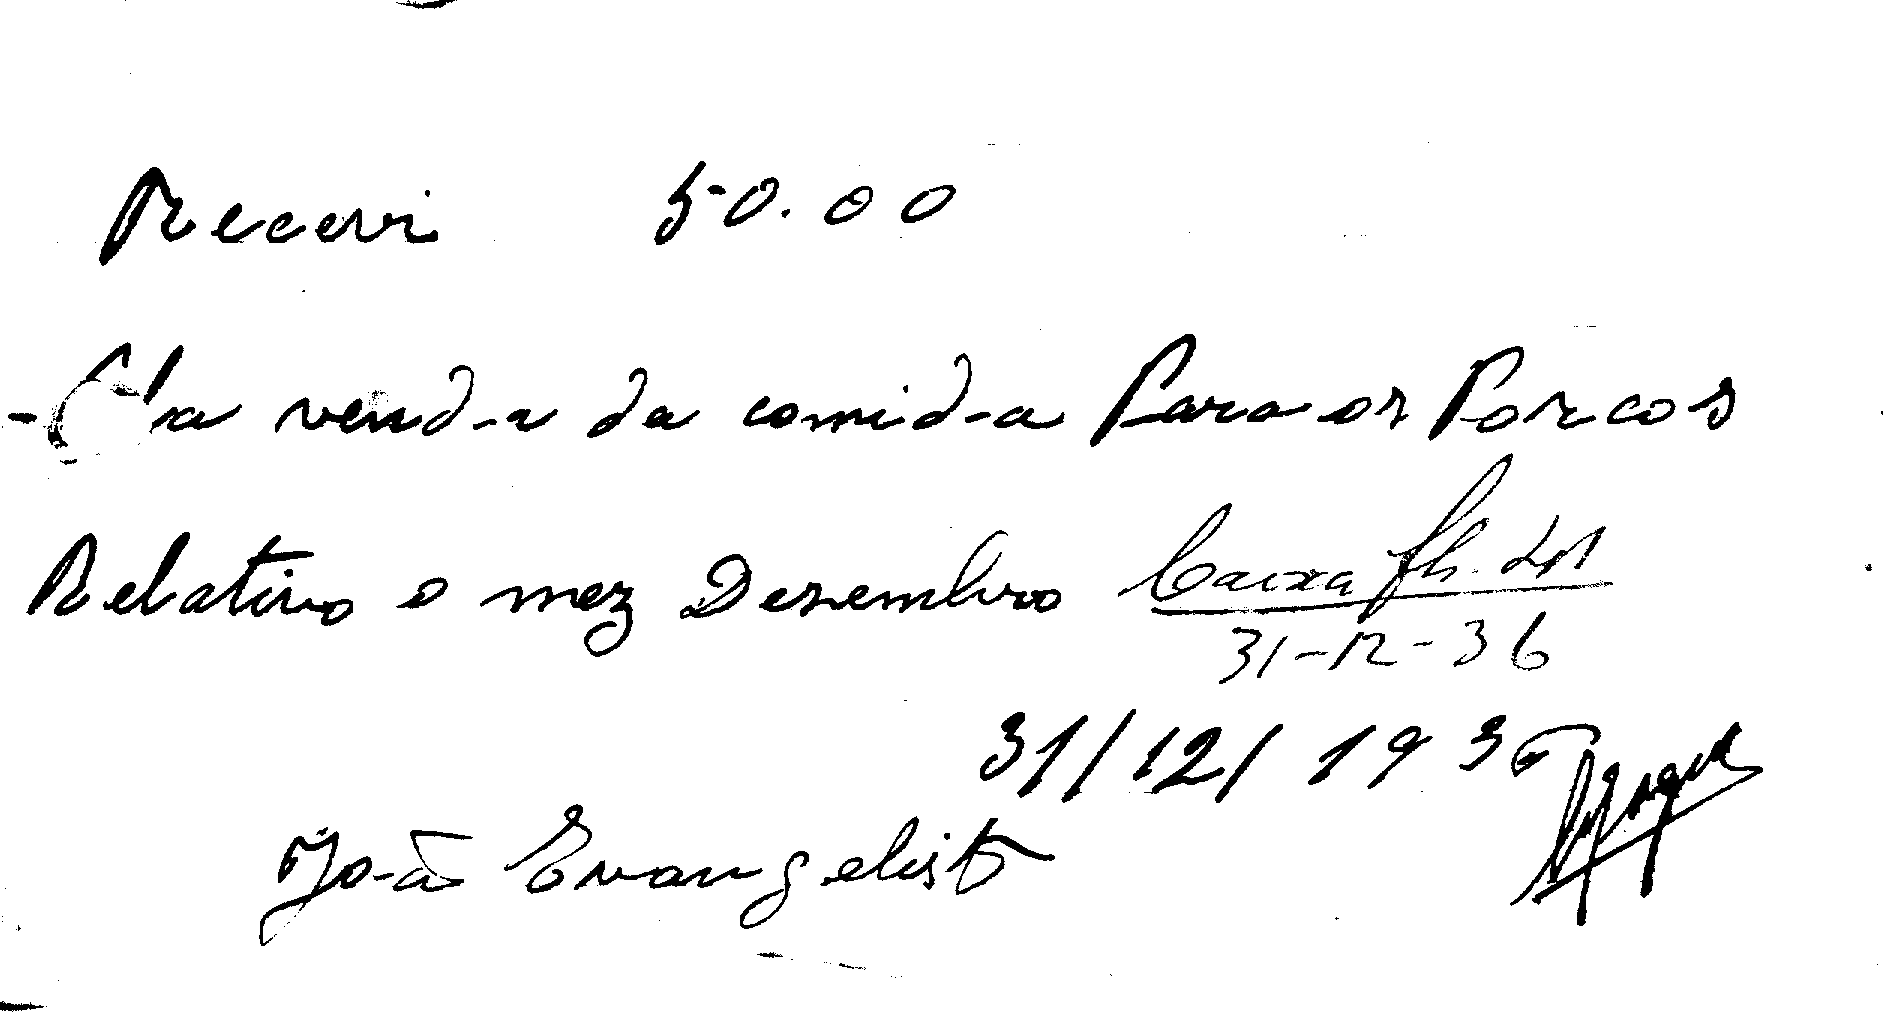 Recevi 50.00
venda da comida Para os Porcos
Relativo o mez Desembro Caixa fh.
31-12-36
31/12/1936
João Evangelista